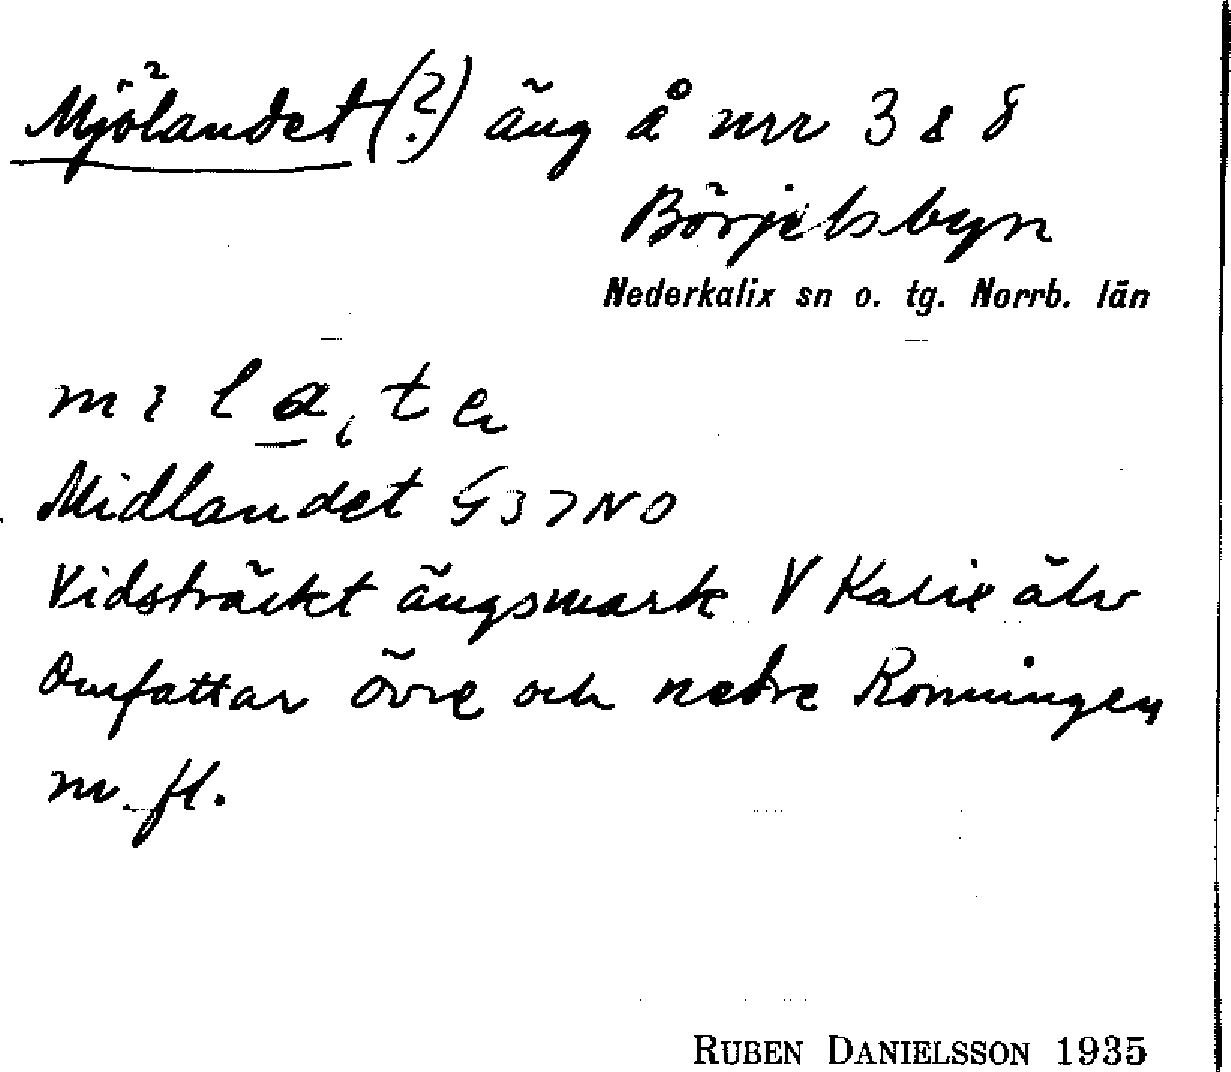 Mjölandet (?) äng å nrr 3 & 8
Börjelsbyn
Nederkalix sn o. tg. Norrb. län
Midlandet G37NO
Vidsträckt ängsmark V Kalix älv
Omfattar övre och nedre Ronningen
m. fl.
RUBEN DANIELSSON 1935